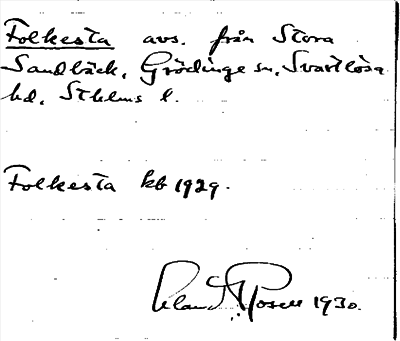 Folkesta avs. från Stora
Sandbäck, Grödinge sn, Svartlösa
hd, Sthlms l.
Folkesta kb 1929.
1930.